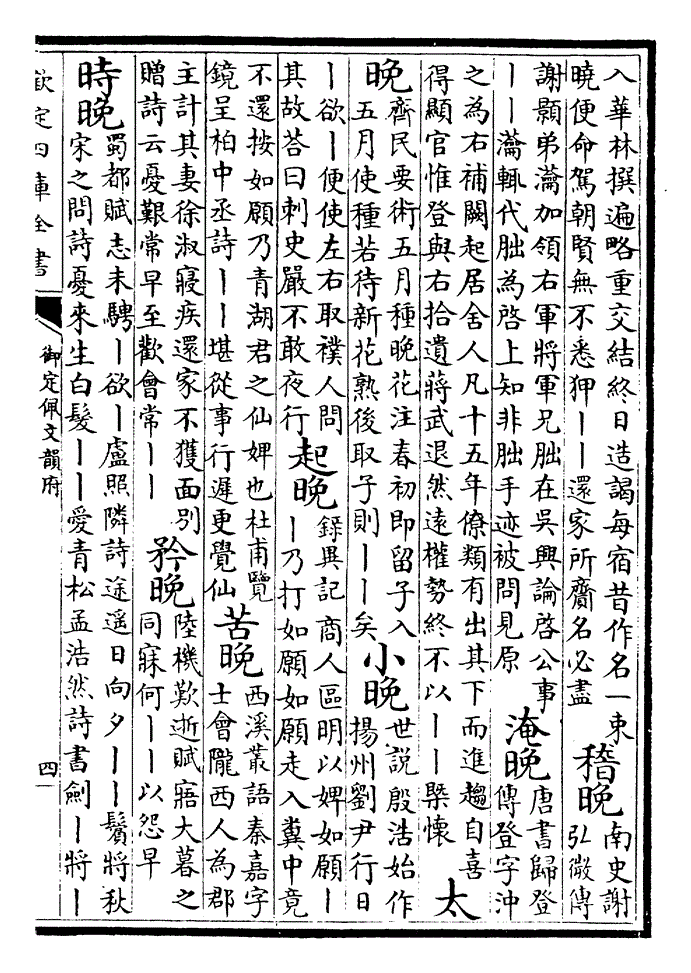 入華林撰遍略重交結終日造謁每宿昔作名一束
曉便命駕朝賢無不悉狎丨丨還家所齎名必盡
稽晚
南史謝
弘微傳
謝顥弟瀹加領右軍將軍兄朏在吳興論啓公事
丨丨瀹輒代朏為啓上知非朏手迹被問見原
淹晚
唐書歸登
傳登字沖
之為右補闕起居舍人凡十五年僚類有出其下而進趨自喜
得顯官惟登與右拾遺蔣武退然遠權勢終不以丨丨槩懷
太
晚
齊民要術五月種晚花注春初即留子入
五月使種若待新花熟後取子則丨丨矣
小晚
世説殷浩始作
揚州劉尹行日
丨欲丨便使左右取襆人問
其故荅曰刺史嚴不敢夜行
起晚
録異記商人區明以婢如願丨
丨乃打如願如願走入糞中竟
不還按如願乃青湖君之仙婢也杜甫覽
鏡呈柏中丞詩丨丨堪從事行遲更覺仙
苦晚
西溪叢語秦嘉字
士會隴西人為郡
主計其妻徐淑寢疾還家不獲面别
贈詩云憂艱常早至歡會常丨丨
矜晚
陸機歎逝賦寤大暮之
同寐何丨丨以怨早
時晚
蜀都賦志未騁丨欲丨盧照隣詩途遥日向夕丨丨鬢將秋
宋之問詩憂來生白髮丨丨愛青松孟浩然詩書劍丨將丨
欽定四庫全書
御定佩文韻府
四